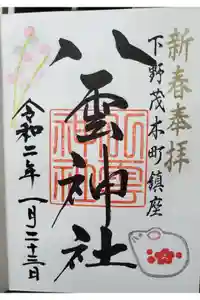 新春奉拝
下野茂木町鎮座
八雲神社
令和二年 一月二十三日